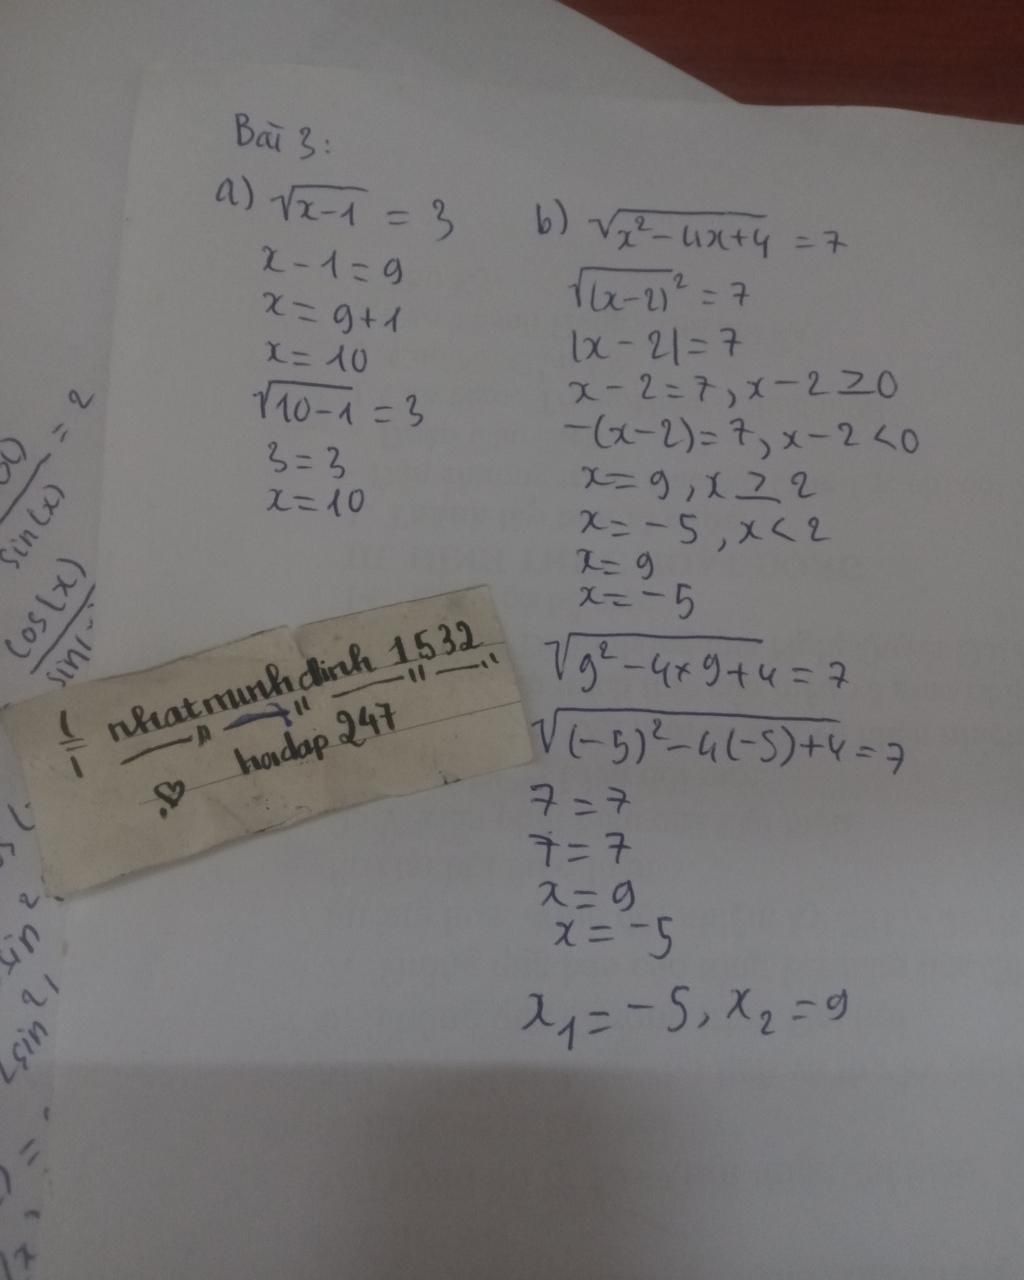 Bài 3:
a) √x-1 = 3
x - 1 = 9
x = 9+1
x = 10
√10-1 = 3
3 = 3
x = 10
b) √x²-4x+4 = 7
√(x-2)² = 7
|x - 2| = 7
x - 2 = 7, x - 2 ≥ 0
-(x-2) = 7, x - 2 < 0
x = 9, x ≥ 2
x = -5, x < 2
x = 9
x = -5
√9²-4×9+4 = 7
√(-5)²-4(-5)+4 = 7
7 = 7
7 = 7
x = 9
x = -5
x₁ = -5, x₂ = 9
nhatminhdinh 1532
hoidap 247
sin(x) = 2
cos(x)
sin 2
sin 2